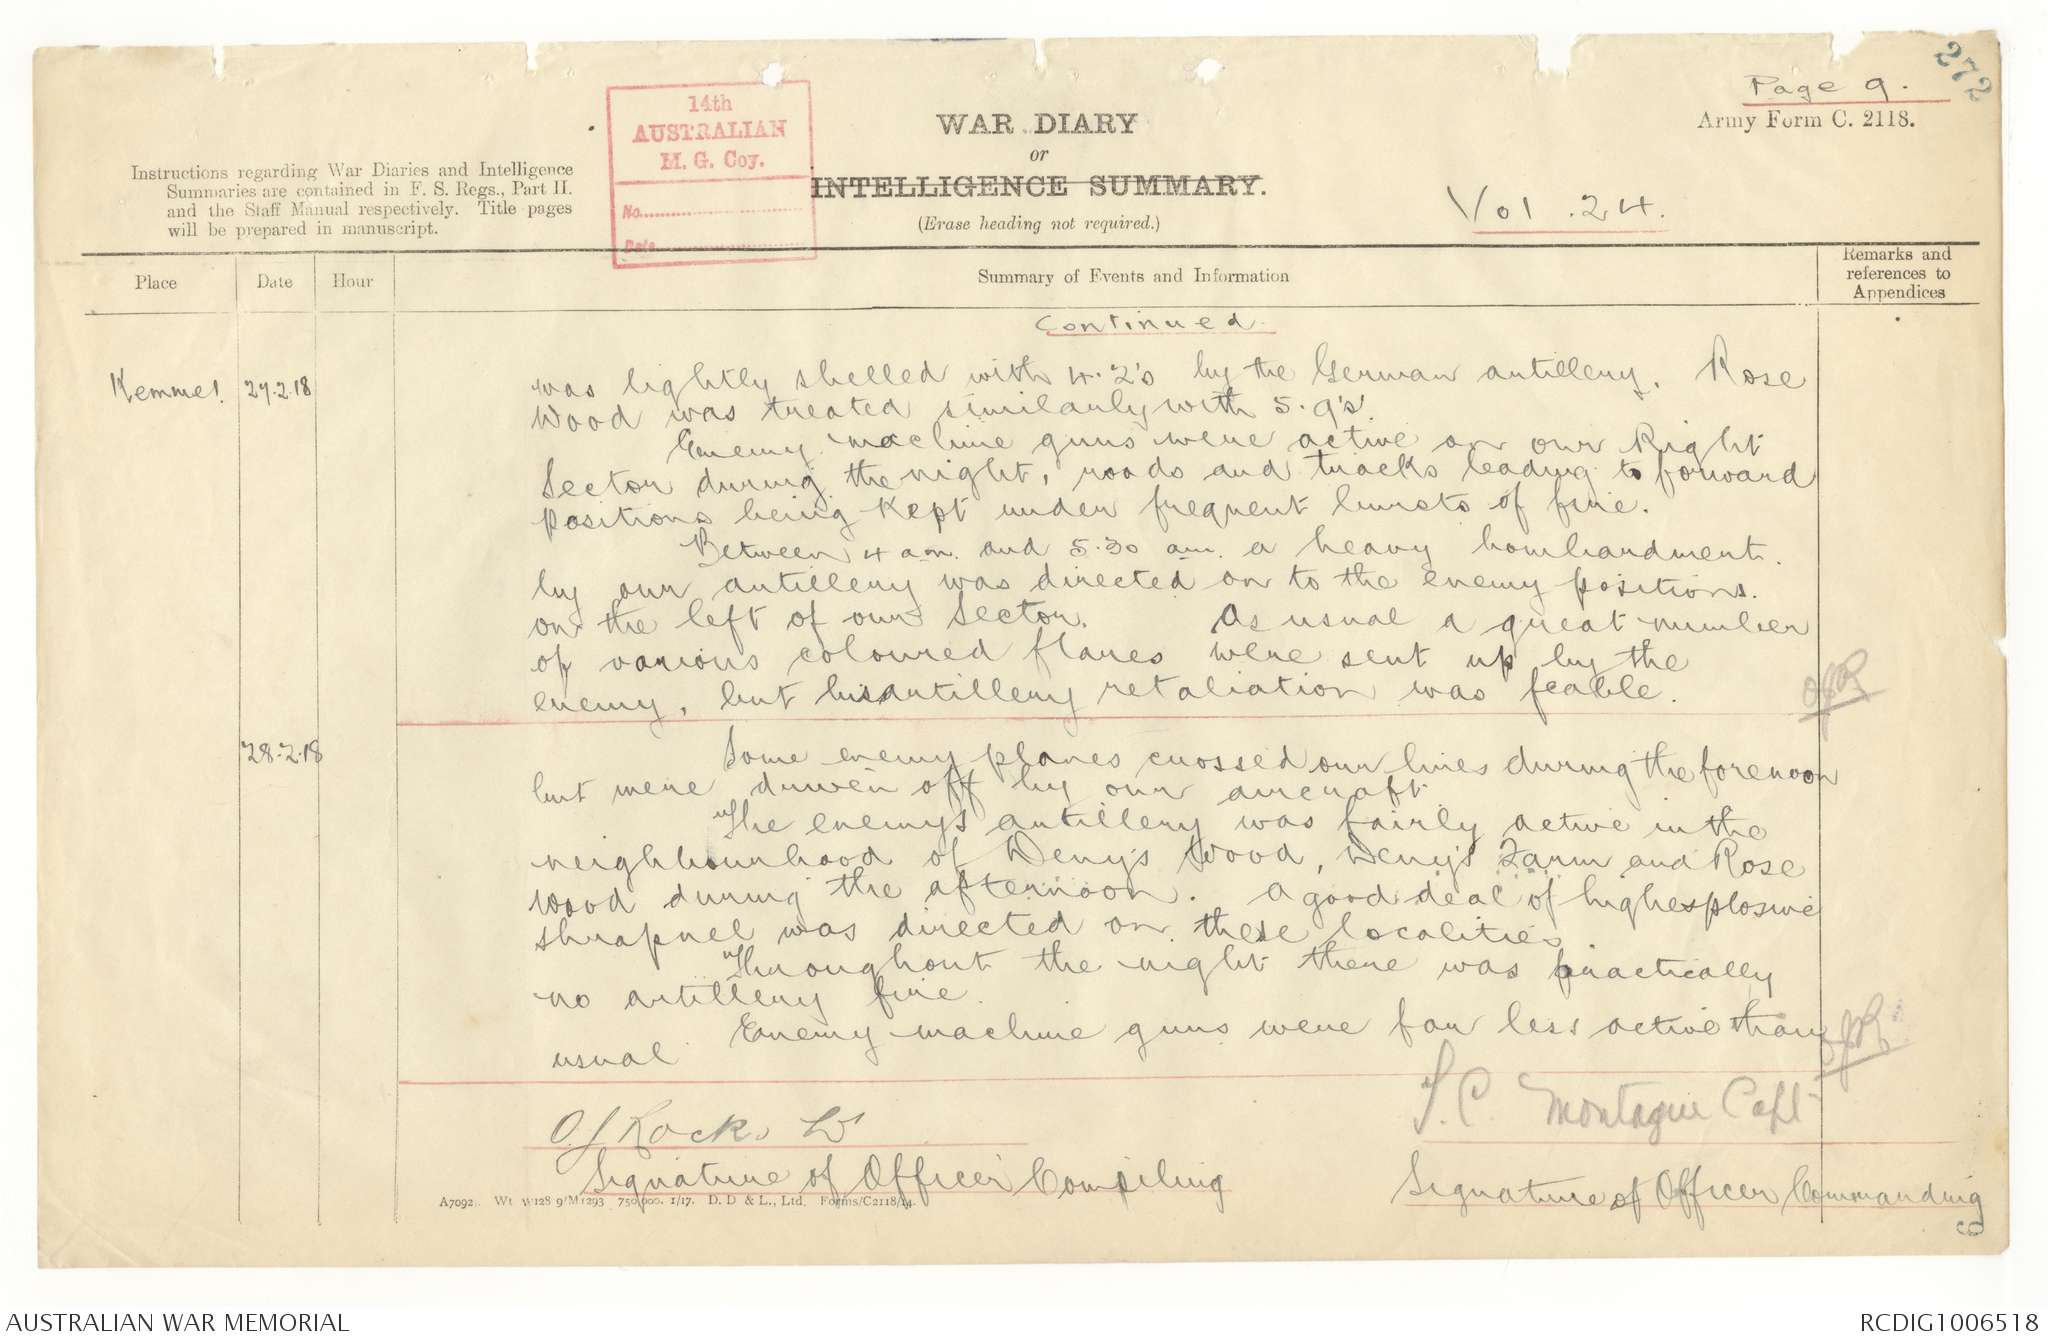 272
Page 9.
Army Form C. 2118.
14th
AUSTRALIAN
M. G. Coy.
No.
Date
WAR DIARY
or
INTELLIGENCE SUMMARY.
(Erase heading not required.)
Vol. 24.
Instructions regarding War Diaries and Intelligence
Summaries are contained in F. S. Regs., Part II.
and the Staff Manual respectively. Title pages
will be prepared in manuscript.
Place
Date
Hour
Summary of Events and Information
Remarks and
references to
Appendices
Continued
Kemmel
27.2.18
was lightly shelled with 4.2's by the German artillery. Rose
Wood was treated similarly with 5.9's.
Enemy machine guns were active on our Right
Sector during the night, roads and tracks leading to forward
positions being kept under frequent bursts of fire.
Between 4 am. and 5.30 am. a heavy bombardment
by our artillery was directed on to the enemy positions.
on the left of our Sector. As usual a great number
of various coloured flares were sent up by the
enemy, but his artillery retaliation was feable.
OJR
28.2.18
Some enemy planes crossed our lines during the forenoon
but were driven off by our aircraft
The enemy's artillery was fairly active in the
neighbourhood of Denys Wood, Denys Farm and Rose
Wood during the afternoon. A good deal of high explosive
shrapnel was directed on these localities.
Throughout the night there was practically
no artillery fire.
Enemy machine guns were far less active than
usual
OJR
OJ Rock Lt
Signature of Officer Compiling
Montague Capt
Signature of Officer Commanding
A7092. Wt W128 9/M1293 750,000. 1/17. D. D & L., Ltd. Forms/C2118/14.
9
AUSTRALIAN WAR MEMORIAL
RCDIG1006518